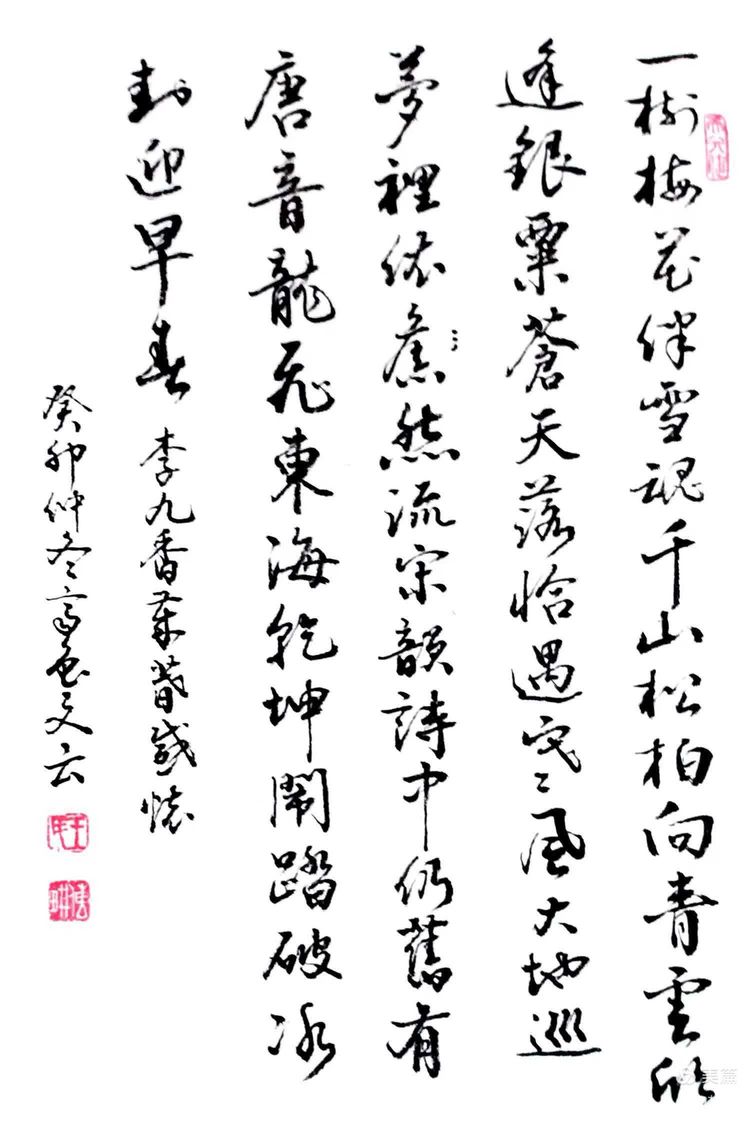 一樹梅花伴雪魂千山松柏向青雲欣
逢銀粟蒼天落恰遇寒風大地巡
夢裡依然流宋韻詩中仍舊有
唐音龍飛東海乾坤鬧踏破冰
封迎早春 李九香暮感懷
癸卯仲冬高文云
美篇